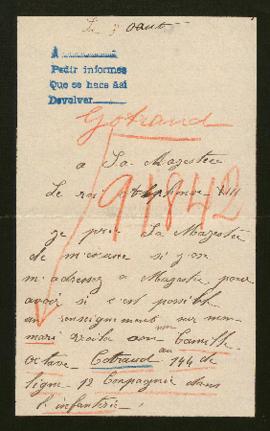 Le 7 août
A
Pedir informes
Que se hace asi
Devolver
Gotraud
a Sa Magestée
Le roi Alphonse XIII
91842
je prie Sa Magestée
de m'excuse si j'ose
m'adressez a Magestée pour
avoir si c'est possible
un renseignement sur mon
mari Voila son nom Camille
Octave Cotraud au 144 de
ligne 12 Conpagnie dans
l'infantrie